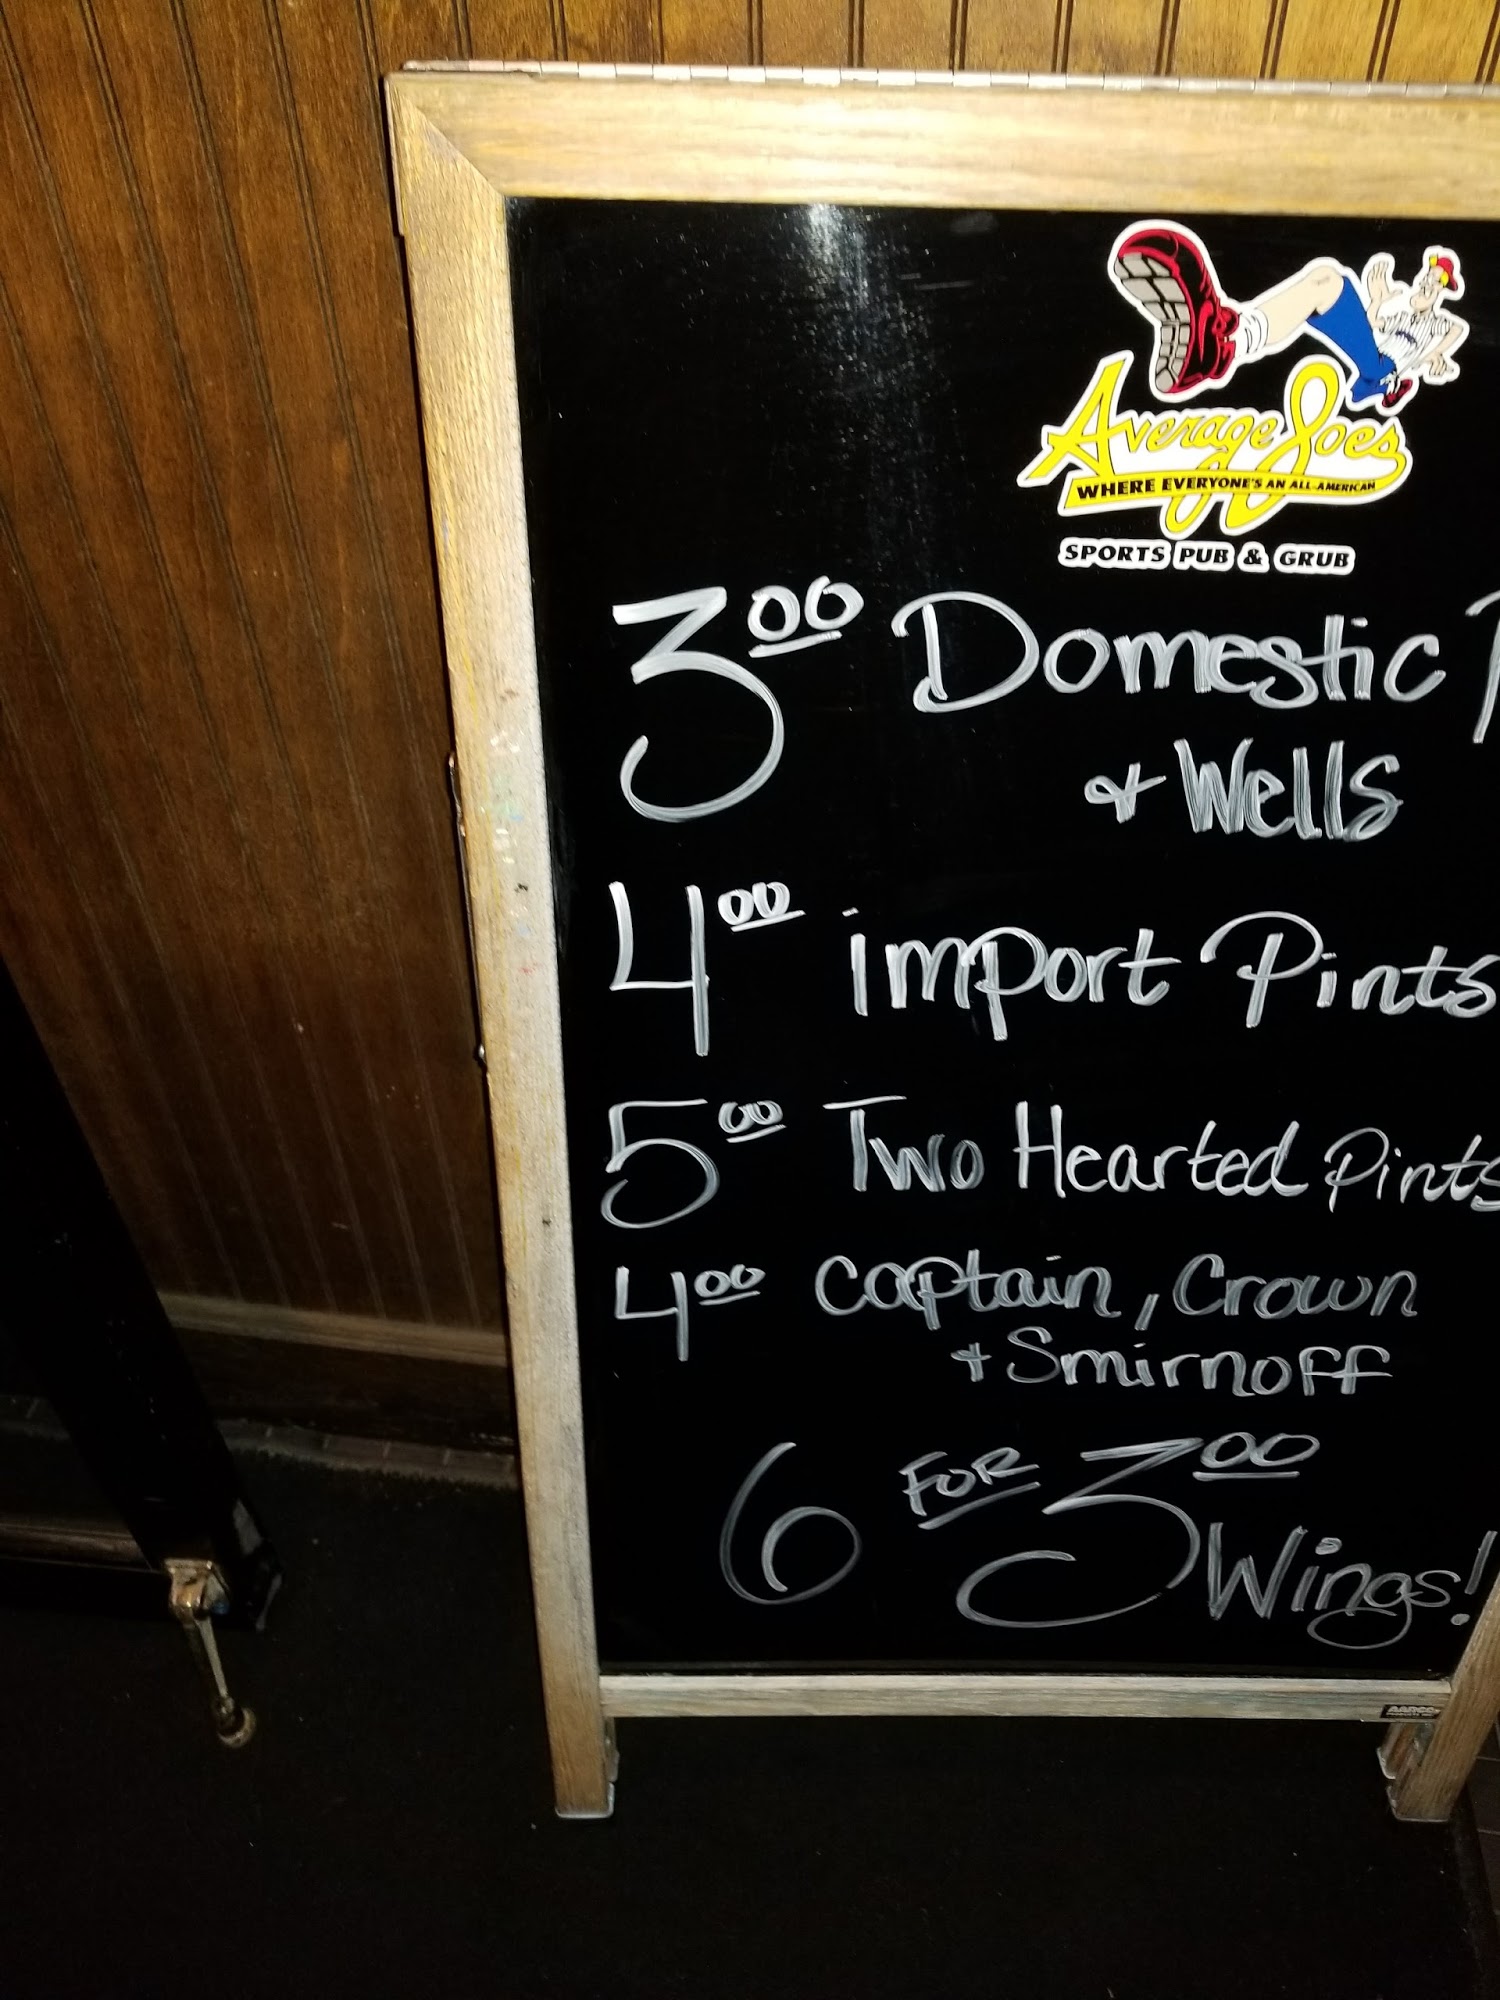 Average Joes
WHERE EVERYONE'S AN ALL-AMERICAN
SPORTS PUB & GRUB
3.00 Domestic
& Wells
4.00 import Pints
5.00 Two Hearted Pints
4.00 Captain, Crown
& Smirnoff
6 FOR 3.00 Wings!
AARCO